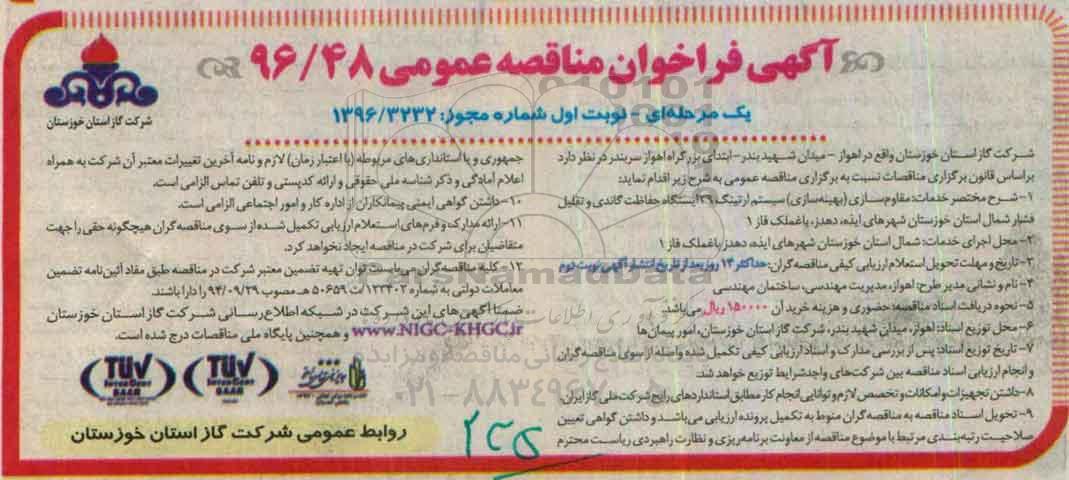 آگهی فراخوان مناقصه عمومی ۹۶/۴۸
یک مرحله‌ای - نوبت اول شماره مجوز: ۱۳۹۶/۳۲۳۲
شرکت گاز استان خوزستان
شرکت گاز استان خوزستان واقع در اهواز - میدان شهید بندر - ابتدای بزرگراه اهواز سربندر در نظر دارد
براساس قانون برگزاری مناقصات نسبت به برگزاری مناقصه عمومی به شرح زیر اقدام نماید:
۱- شرح مختصر خدمات: مقاوم‌سازی (بهینه‌سازی) سیستم ارتینگ ۳۹ ایستگاه حفاظت کاتدی و تقلیل
فشار شمال استان خوزستان شهرهای ایذه، دهدز، باغملک فاز ۱
۲- محل اجرای خدمات: شمال استان خوزستان شهرهای ایذه، دهدز باغملک فاز ۱
۳- تاریخ و مهلت تحویل استعلام ارزیابی کیفی مناقصه گران: حداکثر ۱۴ روز بعد از تاریخ انتشار آگهی نوبت دوم
۴- نام و نشانی مدیر طرح: اهواز، مدیریت مهندسی، ساختمان مهندسی
۵- نحوه دریافت اسناد مناقصه: حضوری و هزینه خرید آن ۱۵۰۰۰۰ ریال می‌باشد.
۶- محل توزیع اسناد: اهواز، میدان شهید بندر، شرکت گاز استان خوزستان، امور پیمان‌ها
۷- تاریخ توزیع اسناد: پس از بررسی مدارک و اسناد ارزیابی کیفی تکمیل شده واصله از سوی مناقصه گران
و انجام ارزیابی اسناد مناقصه بین شرکت‌های واجد شرایط توزیع خواهد شد.
۸- داشتن تجهیزات و امکانات و تخصص لازم و توانایی انجام کار مطابق استانداردهای رایج شرکت ملی گاز ایران.
۹- تحویل اسناد مناقصه به مناقصه گران منوط به تکمیل پرونده ارزیابی می‌باشد و داشتن گواهی تعیین
صلاحیت رتبه‌بندی مرتبط با موضوع مناقصه از معاونت برنامه‌ریزی و نظارت راهبردی ریاست محترم
جمهوری و یا استانداری‌های مربوطه (با اعتبار زمان) لازم و نامه آخرین تغییرات معتبر آن شرکت به همراه
اعلام آمادگی و ذکر شناسه ملی حقوقی و ارائه کدپستی و تلفن تماس الزامی است.
۱۰- داشتن گواهی ایمنی پیمانکاران از اداره کار و امور اجتماعی الزامی است.
۱۱- ارائه مدارک و فرم‌های استعلام ارزیابی تکمیل شده از سوی مناقصه گران هیچگونه حقی را جهت
متقاضیان برای شرکت در مناقصه ایجاد نخواهد کرد.
۱۲- کلیه مناقصه گران می‌بایست توان تهیه تضمین معتبر شرکت در مناقصه طبق مفاد آئین‌نامه تضمین
معاملات دولتی به شماره ۱۲۳۴۰۲/ت ۵۰۶۵۹ هـ مصوب ۹۴/۰۹/۲۹ را دارا باشند.
ضمنا آگهی های این شرکت در شبکه اطلاع رسانی شرکت گاز استان خوزستان
www.NIGC-KHGC.ir و همچنین پایگاه ملی مناقصات درج شده است.
TUV
INTERCERT
SAAR
TUV
INTERCERT
SAAR
روابط عمومی شرکت گاز استان خوزستان
ParsNamadData
۰۲۱-۸۸۳۴۹۶۷۰